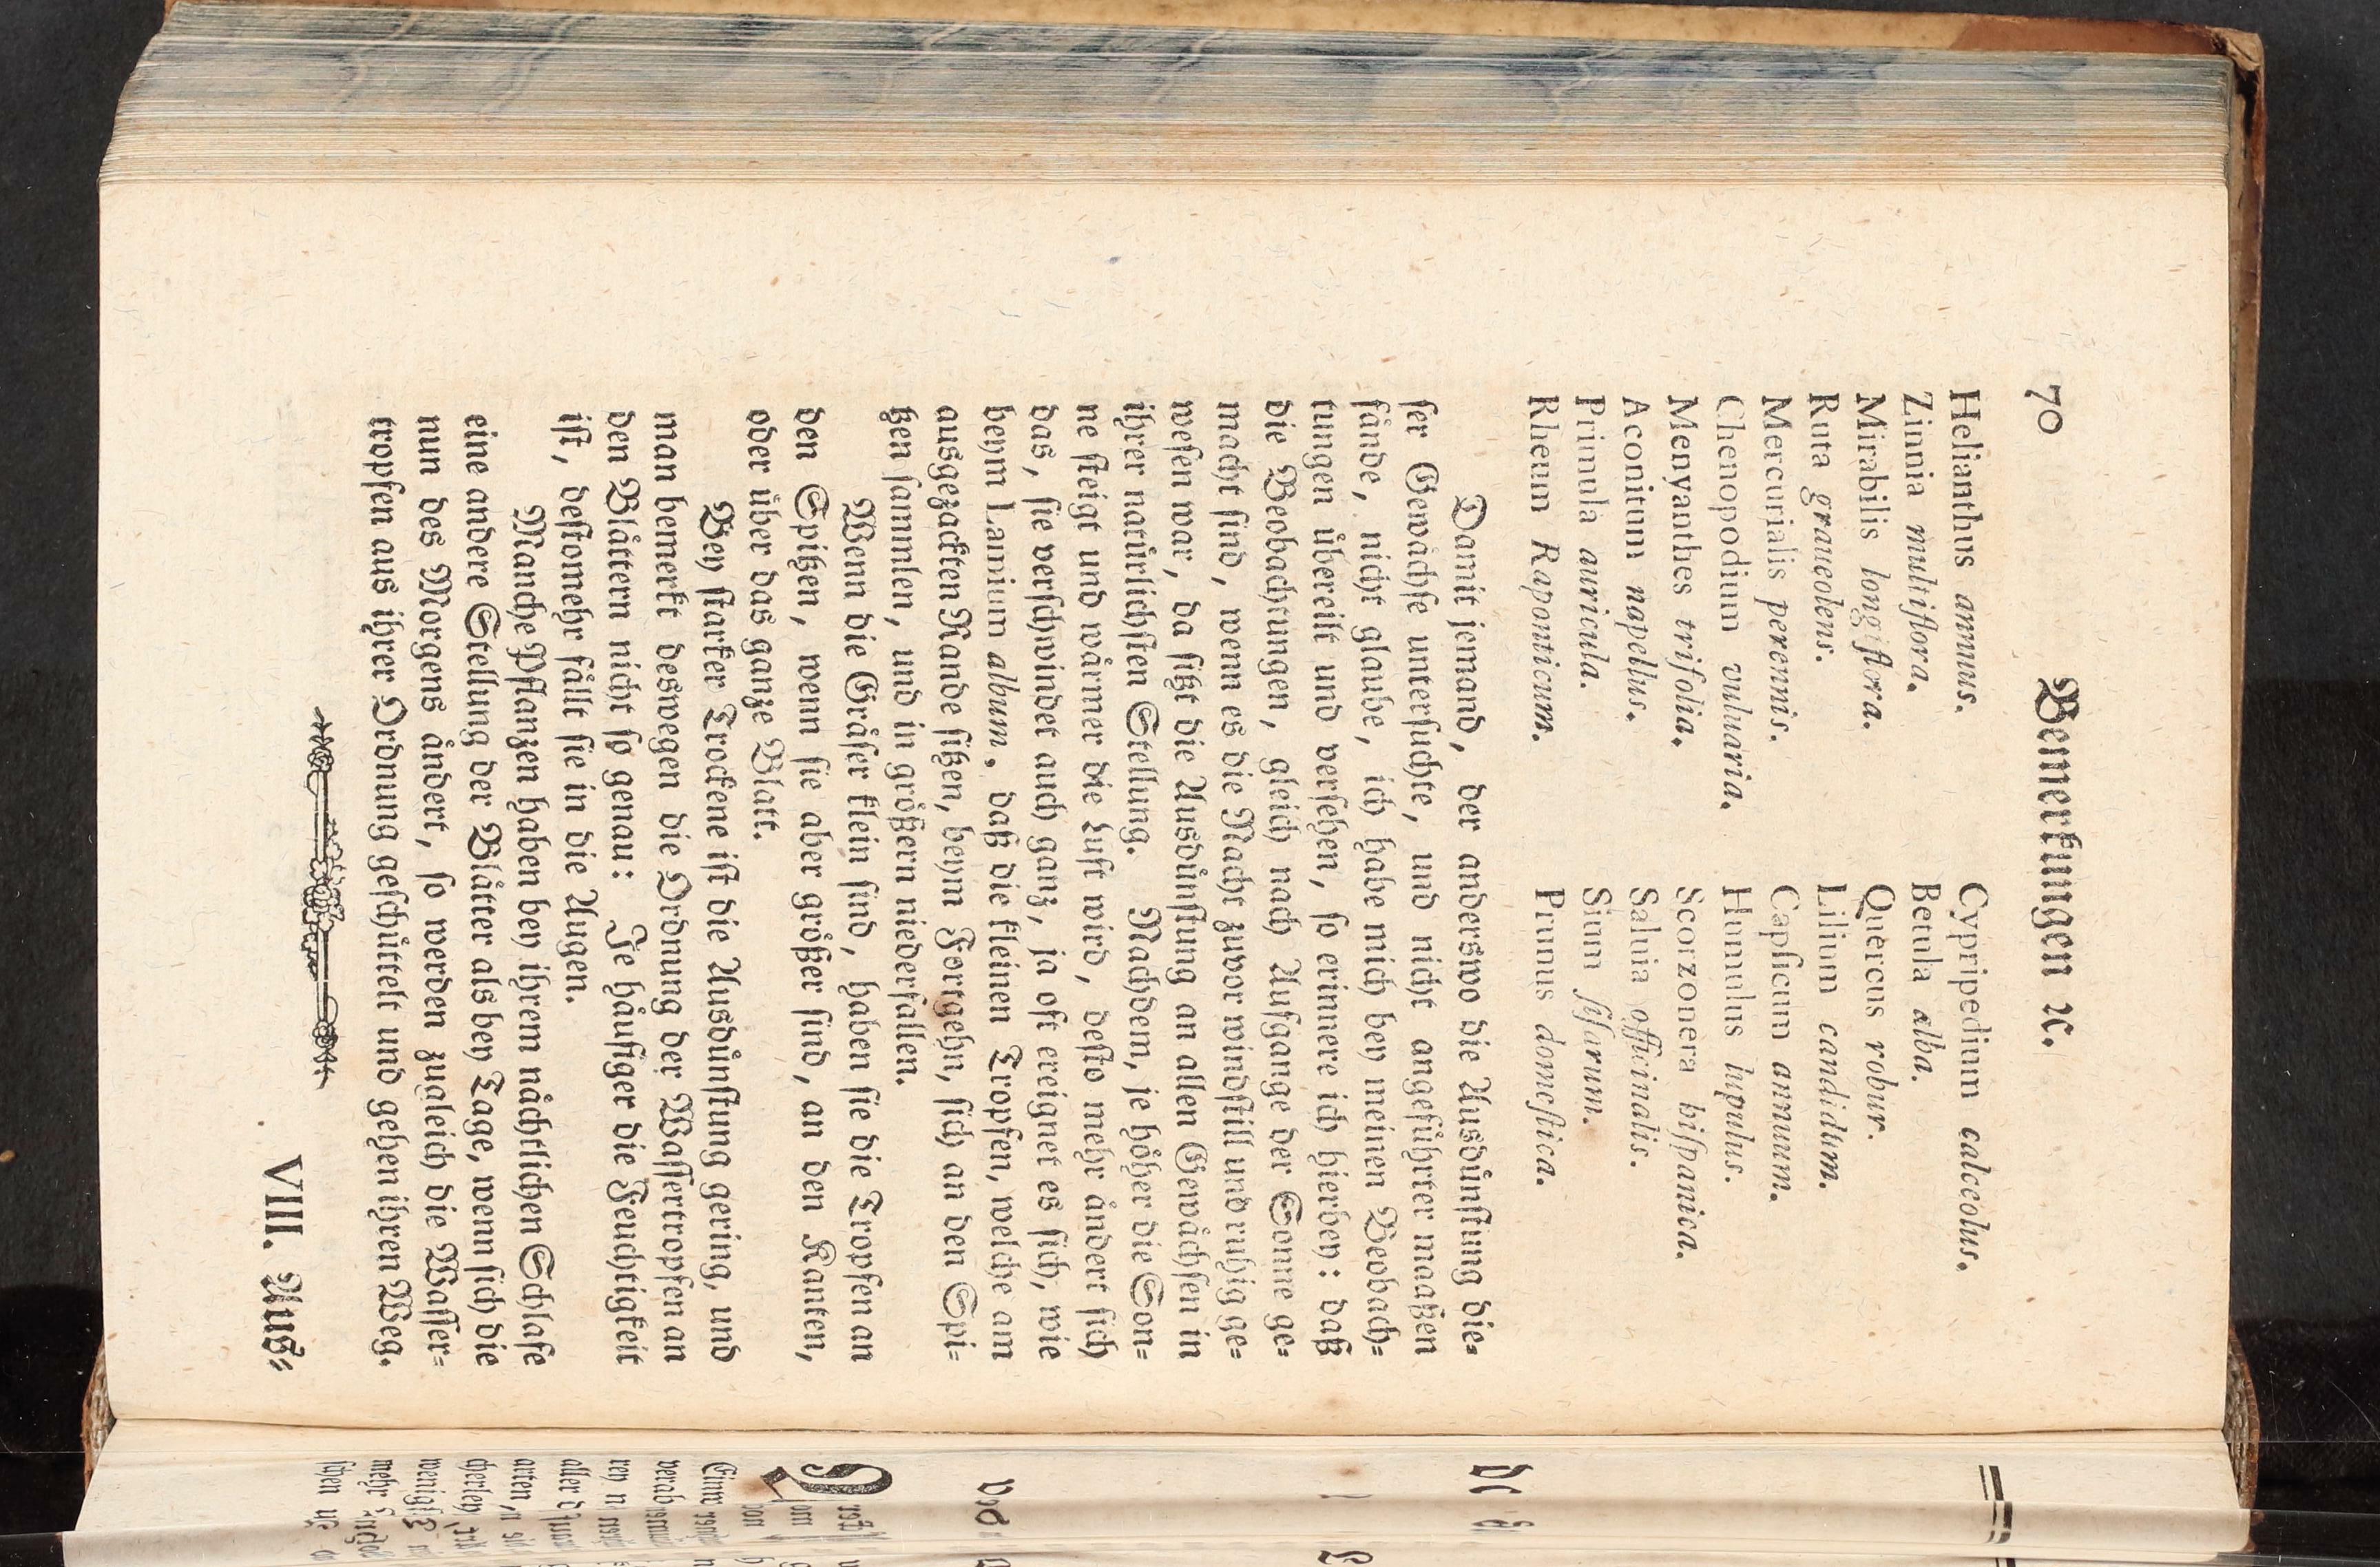 70 Bemerkungen ꝛc.
Helianthus annuus.
Zinnia multiflora.
Mirabilis longiflora.
Ruta graueolens.
Mercurialis perennis.
Chenopodium vuluaria.
Menyanthes trifolia.
Aconitum napellus.
Primula auricula.
Rheum Raponticum.
Cypripedium calceolus.
Betula alba.
Quercus robur.
Lilium candidum.
Capſicum annuum.
Humulus lupulus.
Scorzonera hiſpanica.
Saluia officinalis.
Sium ſiſarum.
Prunus domeſtica.
Damit jemand, der anderswo die Ausdünſtung die-
ſer Gewächſe unterſuchte, und nicht angeführter maaßen
fände, nicht glaube, ich habe mich bey meinen Beobach-
tungen übereilt und verſehen, ſo erinnere ich hierbey: daß
die Beobachtungen, gleich nach Aufgange der Sonne ge-
macht ſind, wenn es die Nacht zuvor windſtill und ruhig ge-
weſen war, da ſitzt die Ausdünſtung an allen Gewächſen in
ihrer natürlichſten Stellung. Nachdem, je höher die Son-
ne ſteigt und wärmer die Luft wird, deſto mehr ändert ſich
das, ſie verſchwindet auch ganz, ja oft ereignet es ſich, wie
beym Lamium album, daß die kleinen Tropfen, welche am
ausgezackten Rande ſitzen, beym Fortgehn, ſich an den Spi-
tzen ſammlen, und in größern niederfallen.
Wenn die Gräſer klein ſind, haben ſie die Tropfen an
den Spitzen, wenn ſie aber größer ſind, an den Kanten,
oder über das ganze Blatt.
Bey ſtarker Trockene iſt die Ausdünſtung gering, und
man bemerkt deswegen die Ordnung der Waſſertropfen an
den Blättern nicht ſo genau: Je häufiger die Feuchtigkeit
iſt, deſtomehr fällt ſie in die Augen.
Manche Pflanzen haben bey ihrem nächtlichen Schlafe
eine andere Stellung der Blätter als bey Tage, wenn ſich die
nun des Morgens ändert, ſo werden zugleich die Waſſer-
tropfen aus ihrer Ordnung geſchüttelt und gehen ihren Weg.
VIII. Aus-